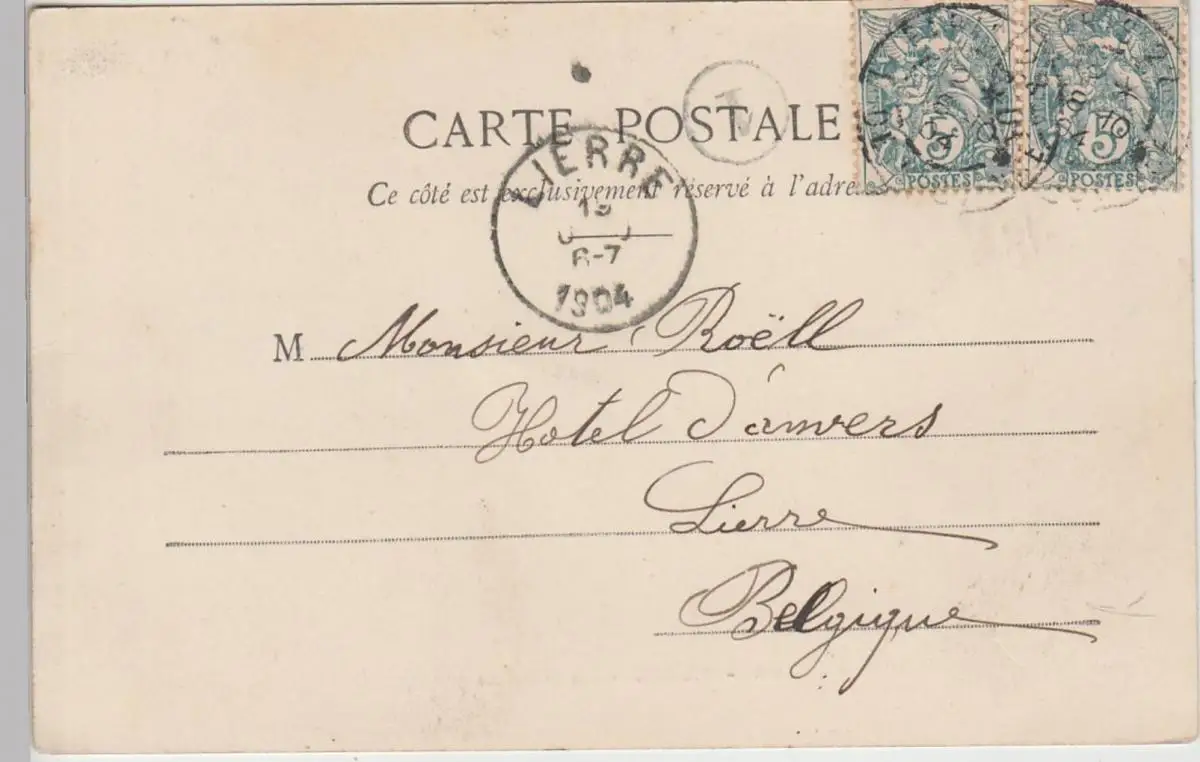 CARTE POSTALE
Ce côté est exclusivement réservé à l'adre
5 POSTES
5 POSTES
LIERRE
6-7
1904
M Monsieur Roëll
Hotel d'anvers
Lierre
Belgique